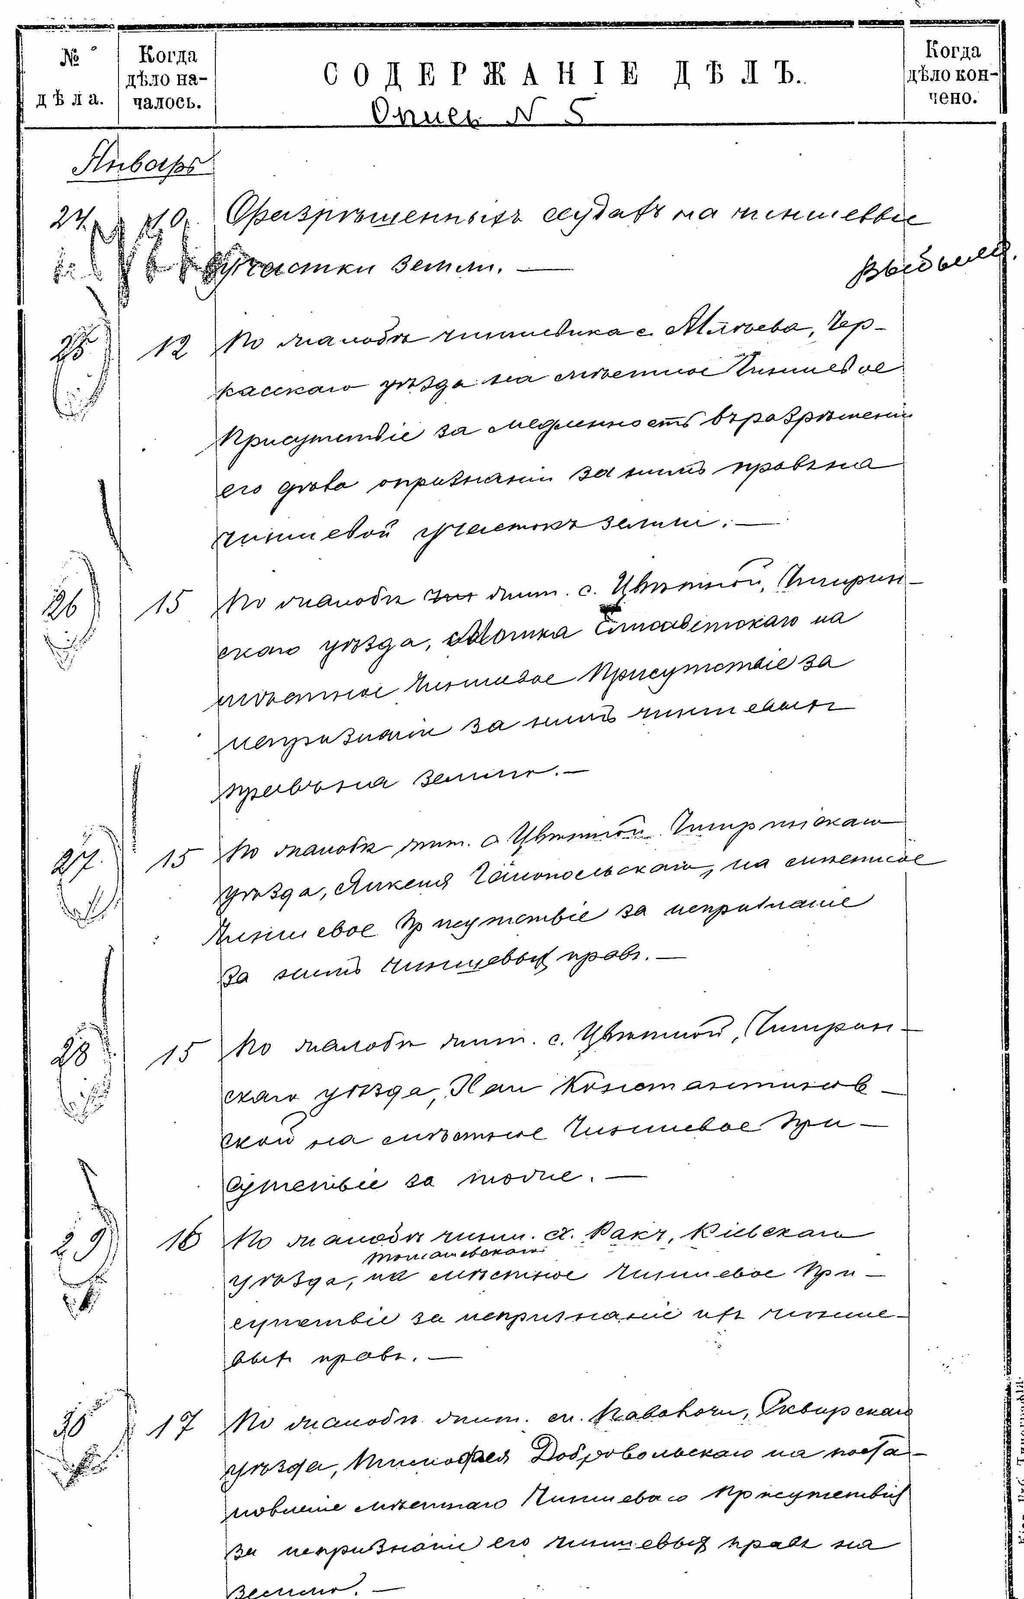 № дѣла.
Когда дѣло началось.
СОДЕРЖАНІЕ ДѢЛЪ.
Когда дѣло кончено.
Опись N 5
Январь
24. 10. О разрѣшенныхъ ссудахъ на чиншевые
участки земли. —
Выбыло.
25 12 По жалобѣ чиншевика с. Мліева, Чер-
касскаго уѣзда на мѣстное Чиншевое
Присутствіе за медленность въ разрѣшеніи
его дѣла о признаніи за нимъ правъ на
чиншевой участокъ земли. —
26 15 По жалобѣ жит. с. Цвѣтной, Чигирин-
скаго уѣзда, Мошка Елисаветскаго на
мѣстное Чиншевое Присутствіе за
непризнаніе за нимъ чиншевыхъ
правъ на землю. —
27. 15 По жалобѣ жит. с. Цвѣтной Чигиринскаго
уѣзда, на мѣстное
Чиншевое Присутствіе за непризнаніе
за нимъ чиншевыхъ правъ. —
28 15 По жалобѣ жит. с. Цвѣтной, Чигирин-
скаго уѣзда, Константиновской
на мѣстное Чиншевое При-
сутствіе за тоже. —
29 16 По жалобѣ чинш. Кіевскаго
Томашевскаго
уѣзда, на мѣстное Чиншевое При-
сутствіе за непризнаніе ихъ чинше-
выхъ правъ. —
30 17 По жалобѣ жит. м. Паволочи, Сквирскаго
уѣзда, Тимофея Добровольскаго на поста-
новленіе мѣстнаго Чиншеваго Присутствія
за непризнаніе его чиншевыхъ правъ на
землю. —